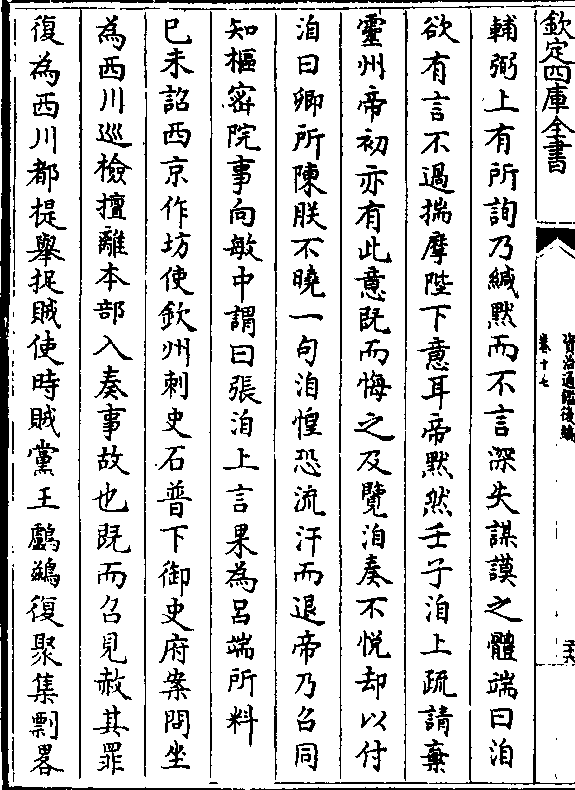 欽定四庫全書
資治通鑑後編
卷十七
輔弼上有所詢乃緘默而不言深失謀謨之體端曰洎
欲有言不過揣摩陛下意耳帝默然壬子洎上疏請棄
靈州帝初亦有此意既而悔之及覽洎奏不悦却以付
洎曰卿所陳朕不曉一句洎惶恐流汗而退帝乃召同
知樞密院事向敏中謂曰張洎上言果為吕端所料
巳未詔西京作坊使欽州刺史石普下御史府案問坐
為西川巡檢擅離本部入奏事故也既而召見赦其罪
復為西川都提舉捉賊使時賊黨王鸕鷀復聚集剽畧